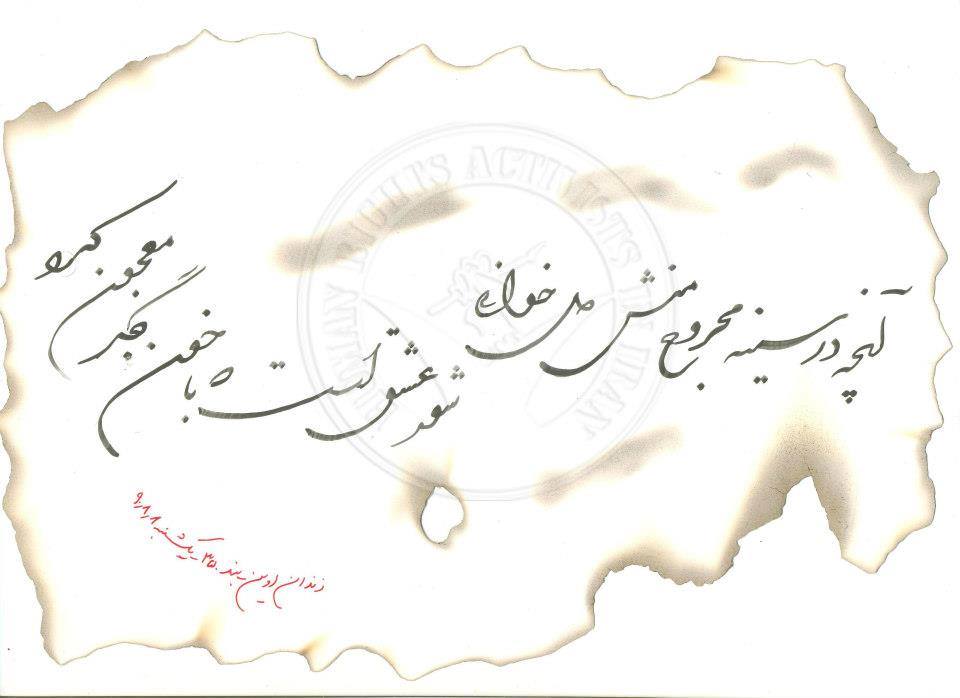 آنچه در سینه مجروح منش دل خوانی
شعر عشق است با خون جگر معجون کرد
زندان اوین بند ۳۵۰ یکشنبه
HUMAN RIGHTS ACTIVISTS IN IRAN